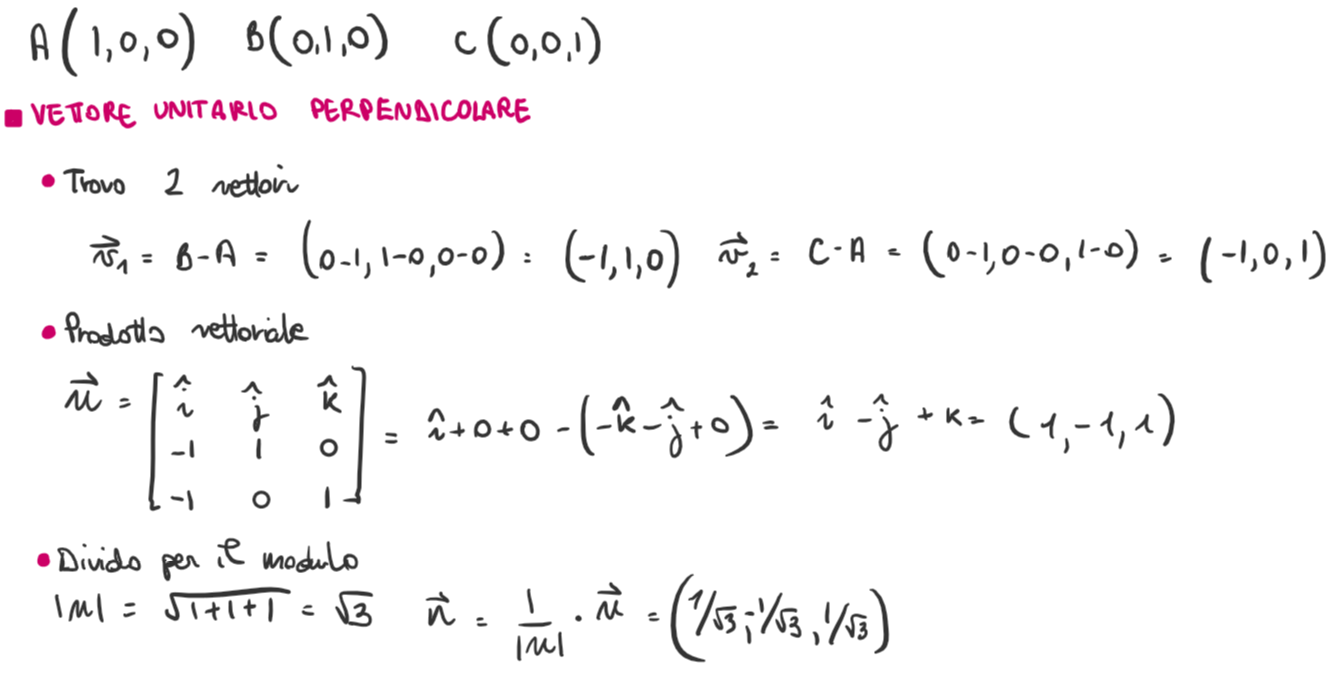 A(1,0,0) B(0,1,0) C(0,0,1)
VETTORE UNITARIO PERPENDICOLARE
• Trovo 2 vettori
v⃗₁ = B-A = (0-1, 1-0, 0-0) = (-1,1,0) v⃗₂ = C-A = (0-1, 0-0, 1-0) = (-1,0,1)
• Prodotto vettoriale
u⃗ = [î ĵ k̂
-1 1 0
-1 0 1] = î+0+0-(-k̂-ĵ+0) = î -ĵ +k = (1,-1,1)
• Divido per il modulo
|u| = √1+1+1 = √3 n⃗ = 1/|u| · u⃗ = (1/√3; -1/√3, 1/√3)